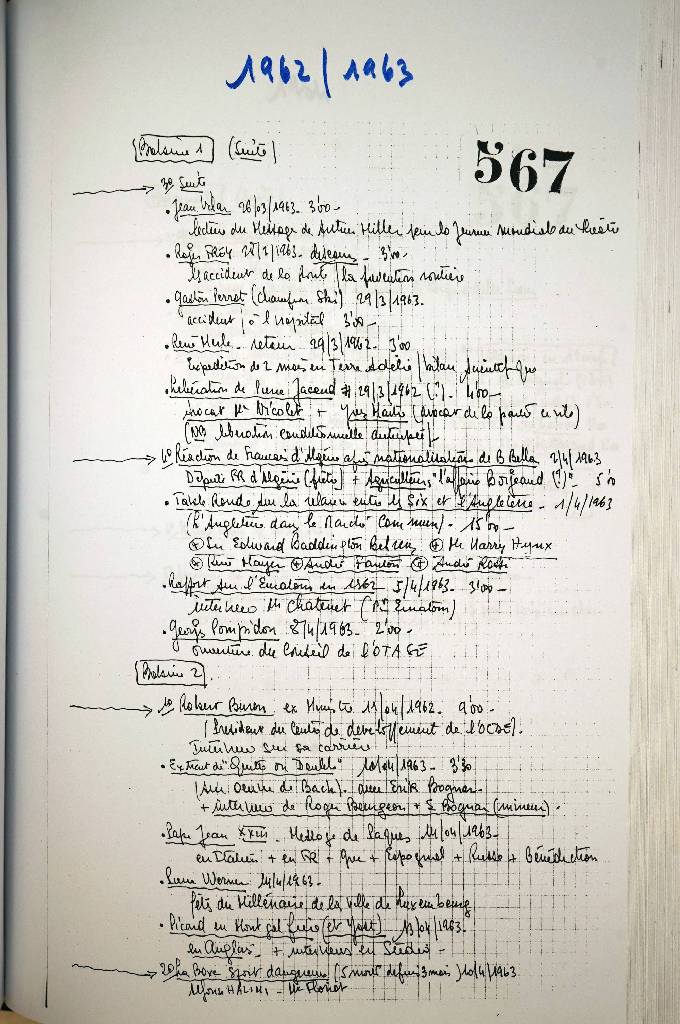 1962/1963
567
Bobine 1 (suite)
3º Suite
. Jean Vilar 26/03/1963 - 3'00 -
lecture du Message de Arthur Miller pour la Journée mondiale du théâtre
. Roger FREY 28/3/1963 - discours - 3'00 -
les accident de la route / la prévention routière
. Gaston Perrot (champion Ski) 29/3/1963 -
accident, à l'hopital 3'00 -
. René Merle - retour 29/3/1962 - 3'00
Expédition de 2 mois en Terre Adélie / bilan scientifique
. Libération de Pierre Jaccoud # 29/3/1962 (?) - 4'00 -
avocat Me Nicolet + Yves Maître (avocat de la partie civile)
(NB libération conditionnelle anticipée)
4º Réaction de Francais d'Algérie après nationalisations de B Bella 2/4/1963
Député FR d'Algérie + Agriculteur "l'affaire Borgeaud (?)" - 5'00
. Table Ronde sur la relation entre les Six et l'Angleterre - 1/4/1963
(L'Angleterre dans le Marché Commun) - 15'00 -
+ Sir Edward + Mr Harry
+ René Mayer + André Fanton + André Rossi
. Rapport sur l'Euratom en 1962 - 5/4/1963 - 3'00 -
interview M Chatenet (Pt Euratom)
. Georges Pompidou 8/4/1963 - 2'00 -
ouverture du Conseil de l'OTASE
Bobine 2
1º Robert Buron ex Ministre 11/04/1962 - 9'00 -
(Président du Centre de développement de l'OCDE) -
Interview sur sa carrière
. Extrait de "Quitte ou Double" 10/04/1963 - 3'30
(sur Oeuvre de Bach) - avec Erik Bognar -
+ interview de Roger Bourgeon + E Bognar (mineur) -
. Pape Jean XXIII - Message de Paques 14/04/1963 -
en Italien + en FR + Grec + Espagnol + Russe + Bénédiction
. Pierre Werner 14/4/1963 -
fêtes du Millénaire de la ville de Luxembourg
. Picard en Montgolfière (et Yost) 13/04/1963 -
en Anglais - + interviews en Suédois -
2º La Boxe Sport dangereux (5 morts depuis 3 mois) 10/4/1963
Alphonse HALIMI - Me Floriot